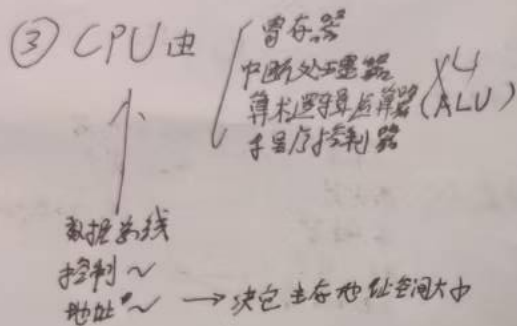 ③ CPU由
寄存器
中断处理器
算术逻辑运算器(ALU)
程序控制器
数据总线
控制~
地址~ → 决定主存地址空间大小